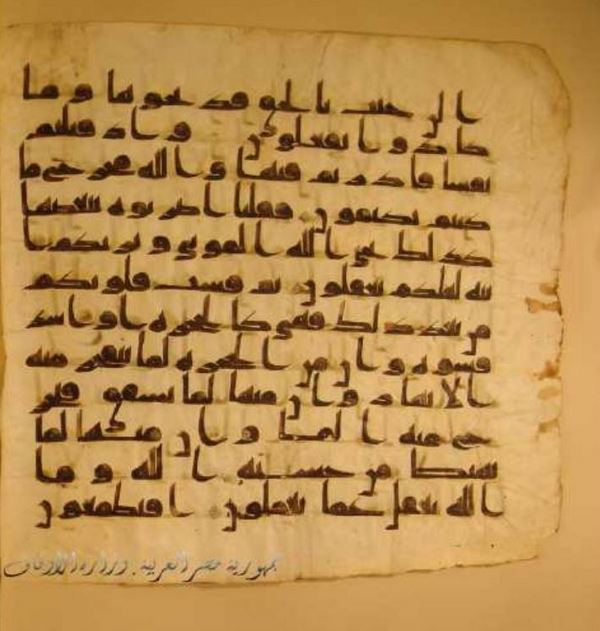 الن جئت بالحق فذبحوها وما
كادوا يفعلون واذ قتلتم
نفسا فادرتم فيها والله مخرج ما
كنتم تكتمون فقلنا اضربوه ببعضها
كذلك يحي الله الموتى ويريكم ا
يته لعلكم تعقلون ثم قست قلوبكم
من بعد ذلك فهي كالحجره او اشد
قسوه وان من الحجره لما يتفجر منه
الانهار وان منها لما يشقق فيخر
ج منه الما وان منها لما
يهبط من خشيه الله وما
الله بغفل عما تعملون افتطمعون
جمهورية مصر العربية. وزارة الأوقاف